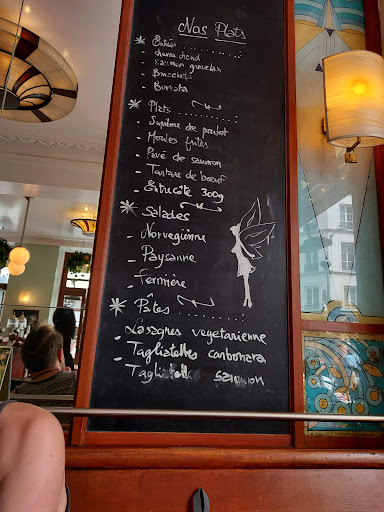 Nos Plats
Entrées
- chèvre chaud
- saumon gravelax
- Bruschetta
- Burrata
Plats
- Suprême de poulet
- Moules frites
- Pavé de saumon
- Tartare de boeuf
- Entrecôte 300g
Salades
- Norvegiénne
- Paysanne
- Fermière
Pâtes
- Lasagnes vegetarienne
- Tagliatelles carbonara
- Tagliatelle saumon